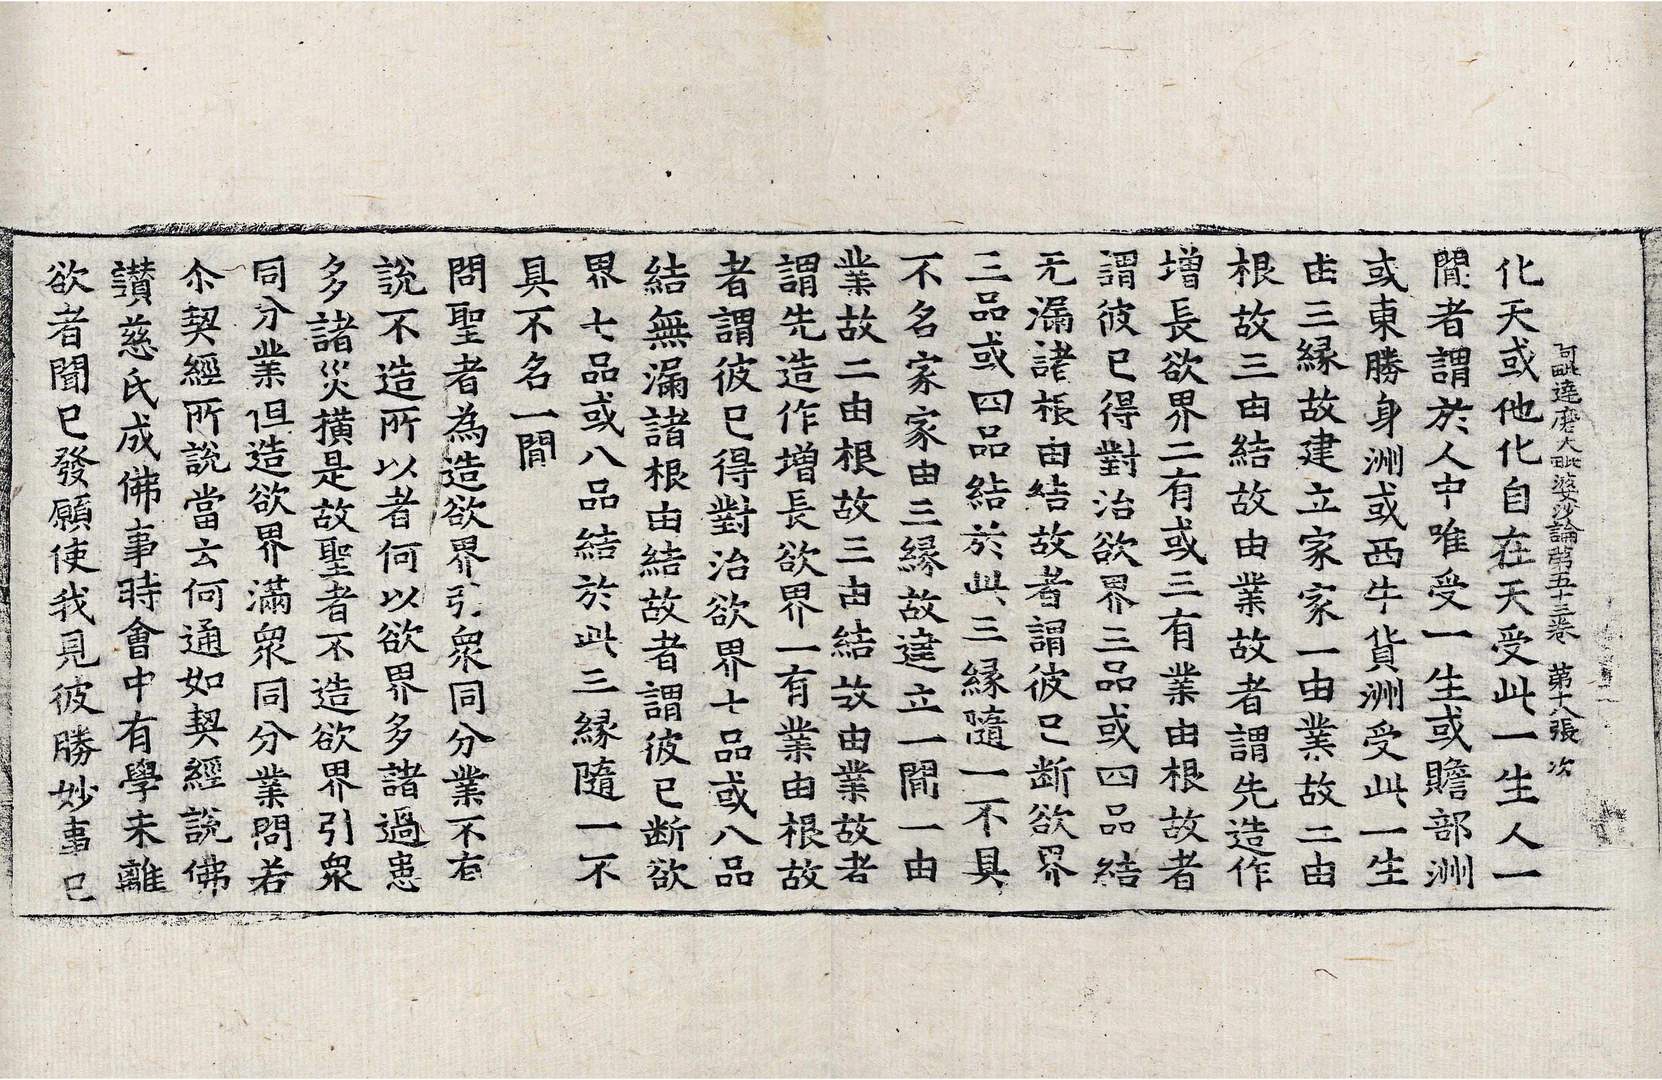 阿毗達磨大毗婆沙論第五十三卷 第十八張 次
化天或他化自在天受此一生人一
閒者謂於人中唯受一生或贍部洲
或東勝身洲或西牛貨洲受此一生
由三緣故建立家家一由業故二由
根故三由結故由業故者謂先造作
增長欲界二有或三有業由根故者
謂彼已得對治欲界三品或四品結
无漏諸根由結故者謂彼已斷欲界
三品或四品結於此三緣隨一不具
不名家家由三緣故建立一閒一由
業故二由根故三由結故由業故者
謂先造作增長欲界一有業由根故
者謂彼已得對治欲界七品或八品
結無漏諸根由結故者謂彼已斷欲
界七品或八品結於此三緣隨一不
具不名一閒
問聖者為造欲界引眾同分業不有
說不造所以者何以欲界多諸過患
多諸災橫是故聖者不造欲界引眾
同分業但造欲界滿眾同分業問若
尒契經所說當云何通如契經說佛
讃慈氏成佛事時會中有學未離
欲者聞已發願使我見彼勝妙事已